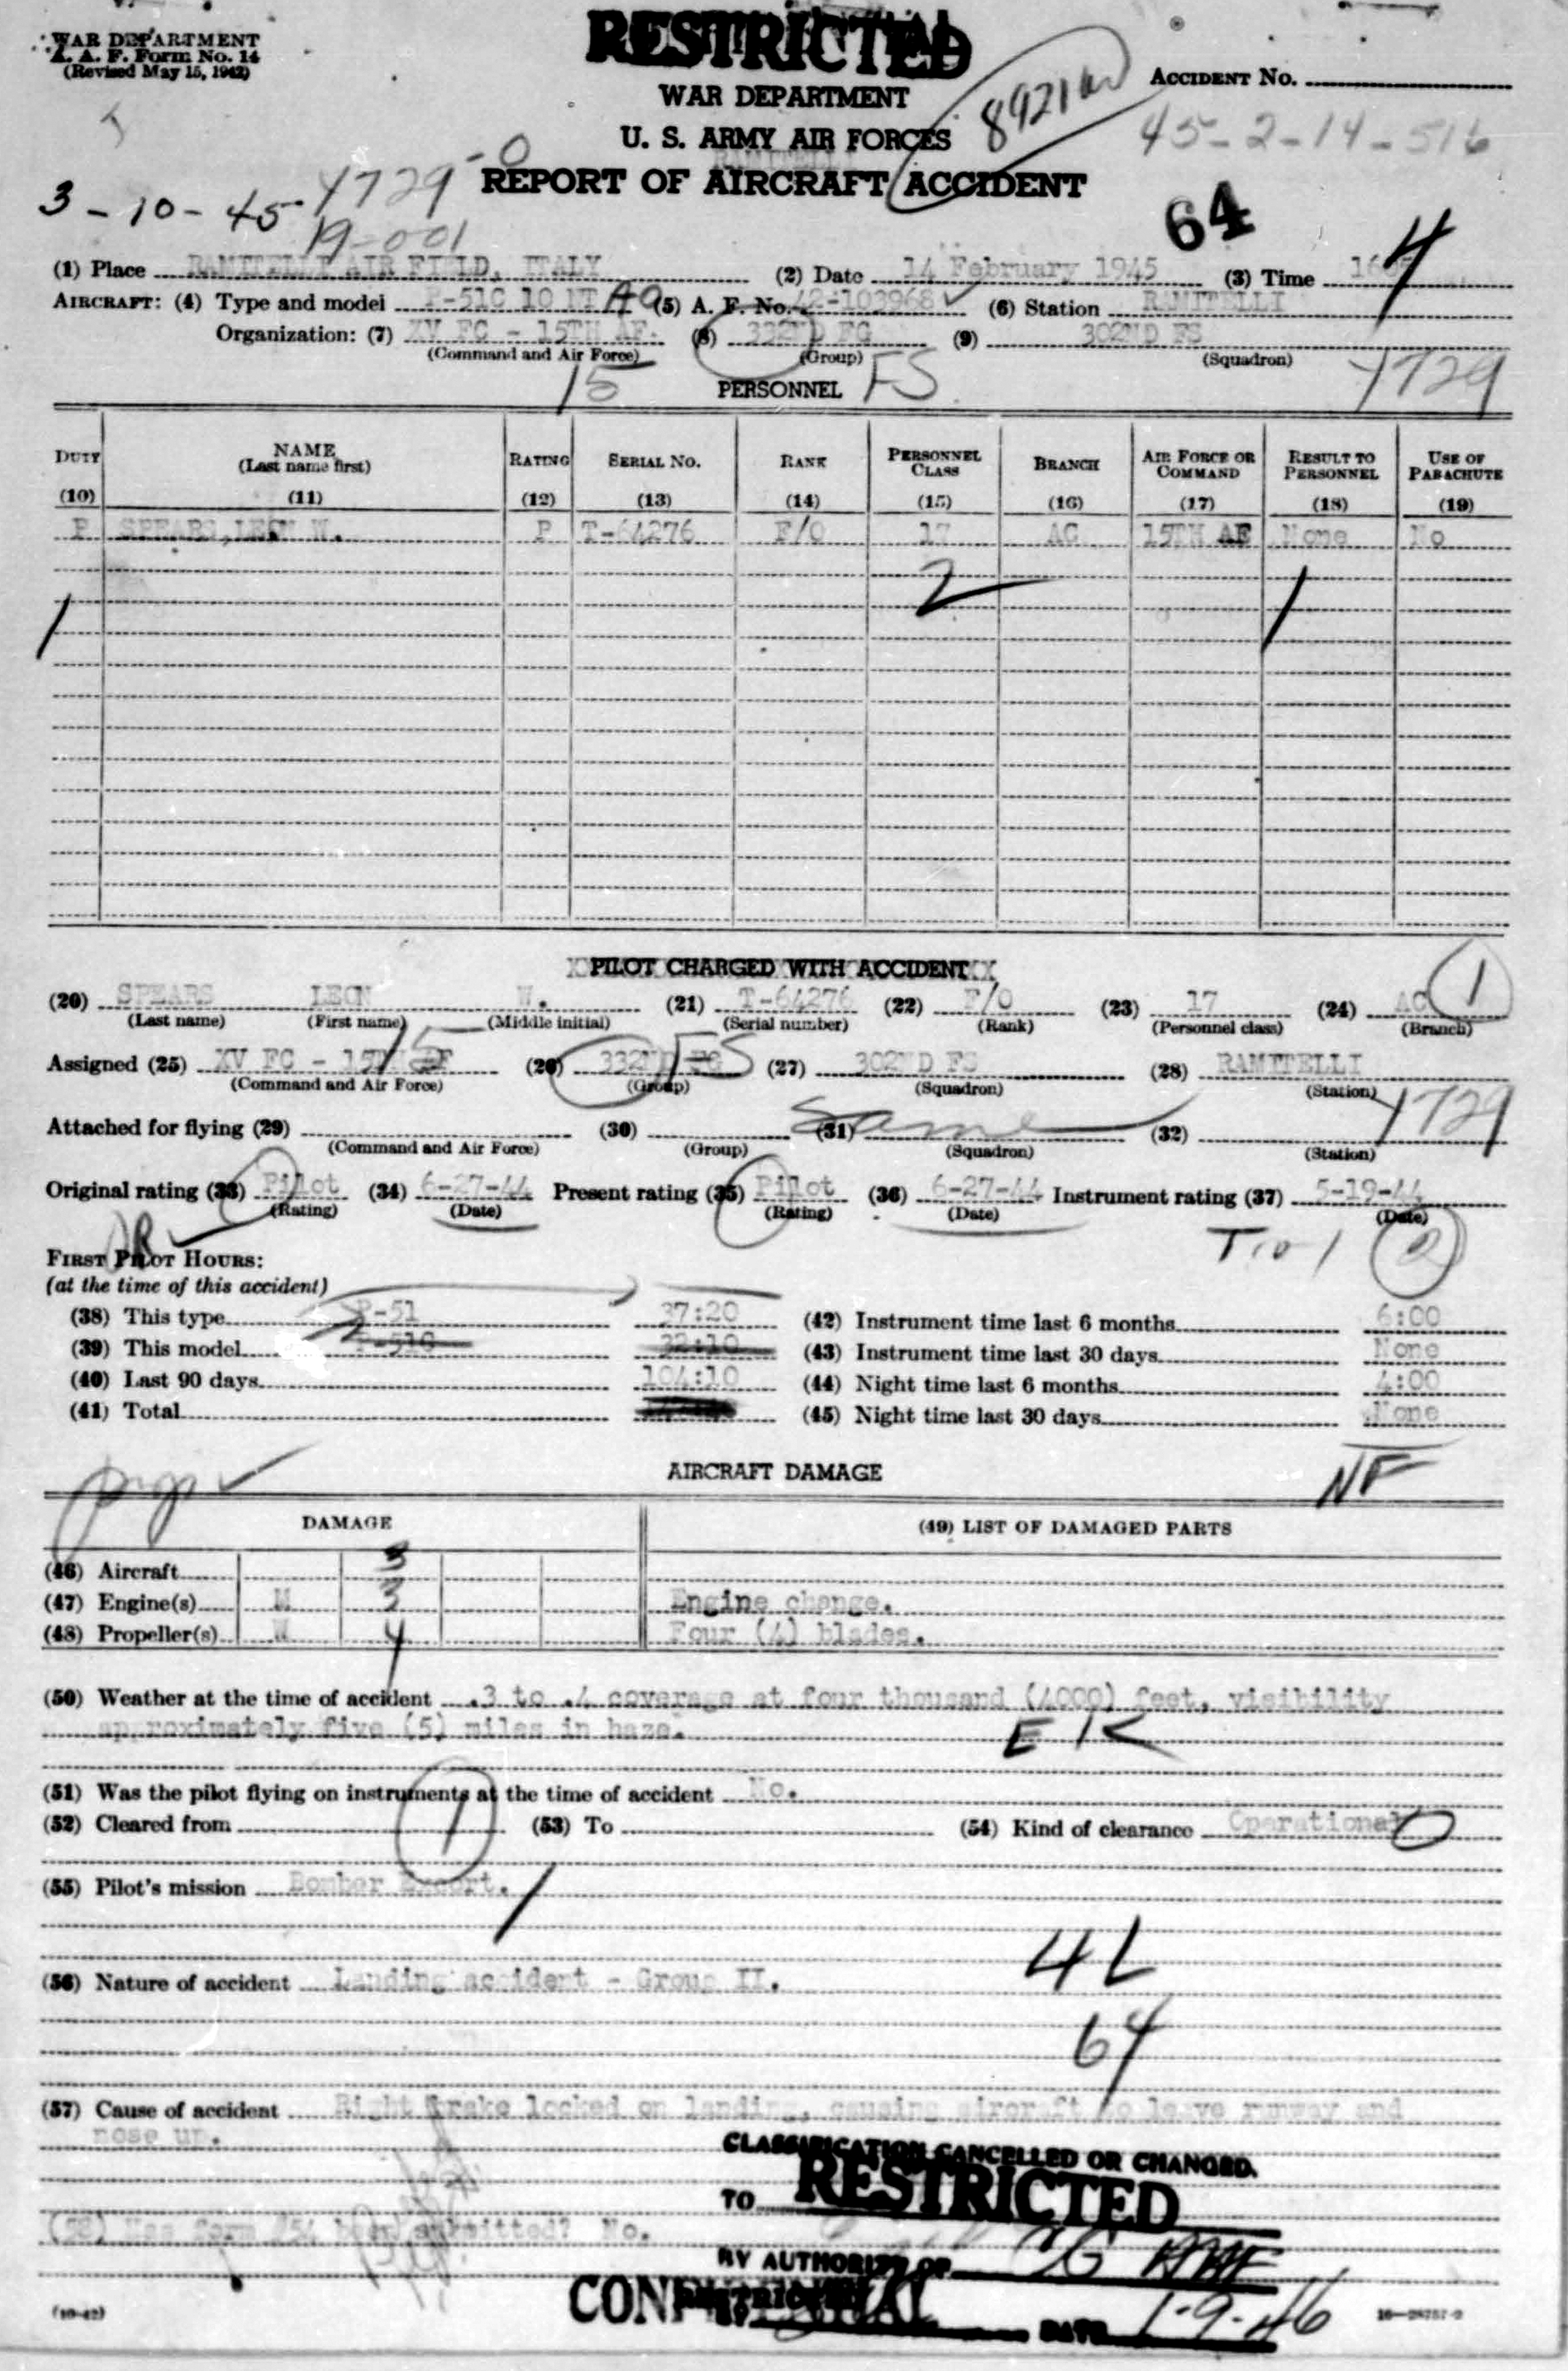 WAR DEPARTMENT
A. A. F. Form No. 14
(Revised May 15, 1942)
RESTRICTED
WAR DEPARTMENT
U. S. ARMY AIR FORCES
REPORT OF AIRCRAFT ACCIDENT
ACCIDENT No.
45-2-14-516
3-10-45
1729-0
19-001
64
4
(1) Place RAMITELLI AIR FIELD, ITALY (2) Date 14 February 1945 (3) Time
AIRCRAFT: (4) Type and model P-51C 10 NT (5) A. F. No. 42-103968 (6) Station RAMITELLI
Organization: (7) XV FC - 15TH AF. (8) 332ND FG (9) 302ND FS
(Command and Air Force) (Group) (Squadron)
15 FS 1729
PERSONNEL
DUTY NAME (Last name first) RATING SERIAL No. RANK PERSONNEL CLASS BRANCH AIR FORCE OR COMMAND RESULT TO PERSONNEL USE OF PARACHUTE
(10) (11) (12) (13) (14) (15) (16) (17) (18) (19)
P SPEARS, LEON W. P T-64276 F/O 17 AC 15TH AF None No
2
PILOT CHARGED WITH ACCIDENT
(20) SPEARS LEON W. (21) T-64276 (22) F/O (23) 17 (24) AC 1
(Last name) (First name) (Middle initial) (Serial number) (Rank) (Personnel class) (Branch)
Assigned (25) XV FC - 15TH AF (26) 332ND FG (27) 302ND FS (28) RAMITELLI
(Command and Air Force) (Group) (Squadron) (Station)
15 FS 1729
Attached for flying (29) (30) (31) Same (32)
(Command and Air Force) (Group) (Squadron) (Station)
Original rating (33) Pilot (34) 6-27-44 Present rating (35) Pilot (36) 6-27-44 Instrument rating (37) 5-19-44
(Rating) (Date) (Rating) (Date) (Date)
FIRST PILOT HOURS:
(at the time of this accident)
(38) This type P-51 37:20 (42) Instrument time last 6 months 6:00
(39) This model P-51C 32:10 (43) Instrument time last 30 days None
(40) Last 90 days 104:10 (44) Night time last 6 months 4:00
(41) Total (45) Night time last 30 days None
NF
AIRCRAFT DAMAGE
DAMAGE (49) LIST OF DAMAGED PARTS
(46) Aircraft 3
(47) Engine(s) M 3 Engine change.
(48) Propeller(s) W 4 Four (4) blades.
(50) Weather at the time of accident .3 to .4 coverage at four thousand (4000) feet, visibility
approximately five (5) miles in haze.
(51) Was the pilot flying on instruments at the time of accident No.
(52) Cleared from (53) To (54) Kind of clearance Operational
(55) Pilot's mission Bomber Escort.
4L
(56) Nature of accident Landing accident - Group II.
64
(57) Cause of accident Right brake locked on landing, causing aircraft to leave runway and
nose up.
CLASSIFICATION CANCELLED OR CHANGED.
TO RESTRICTED
(58) Has form #54 been submitted? No.
BY AUTHORITY OF CG AAF
CONFIDENTIAL
RESTRICTED
BY DATE 1-9-46
(10-42) 16-28757-2